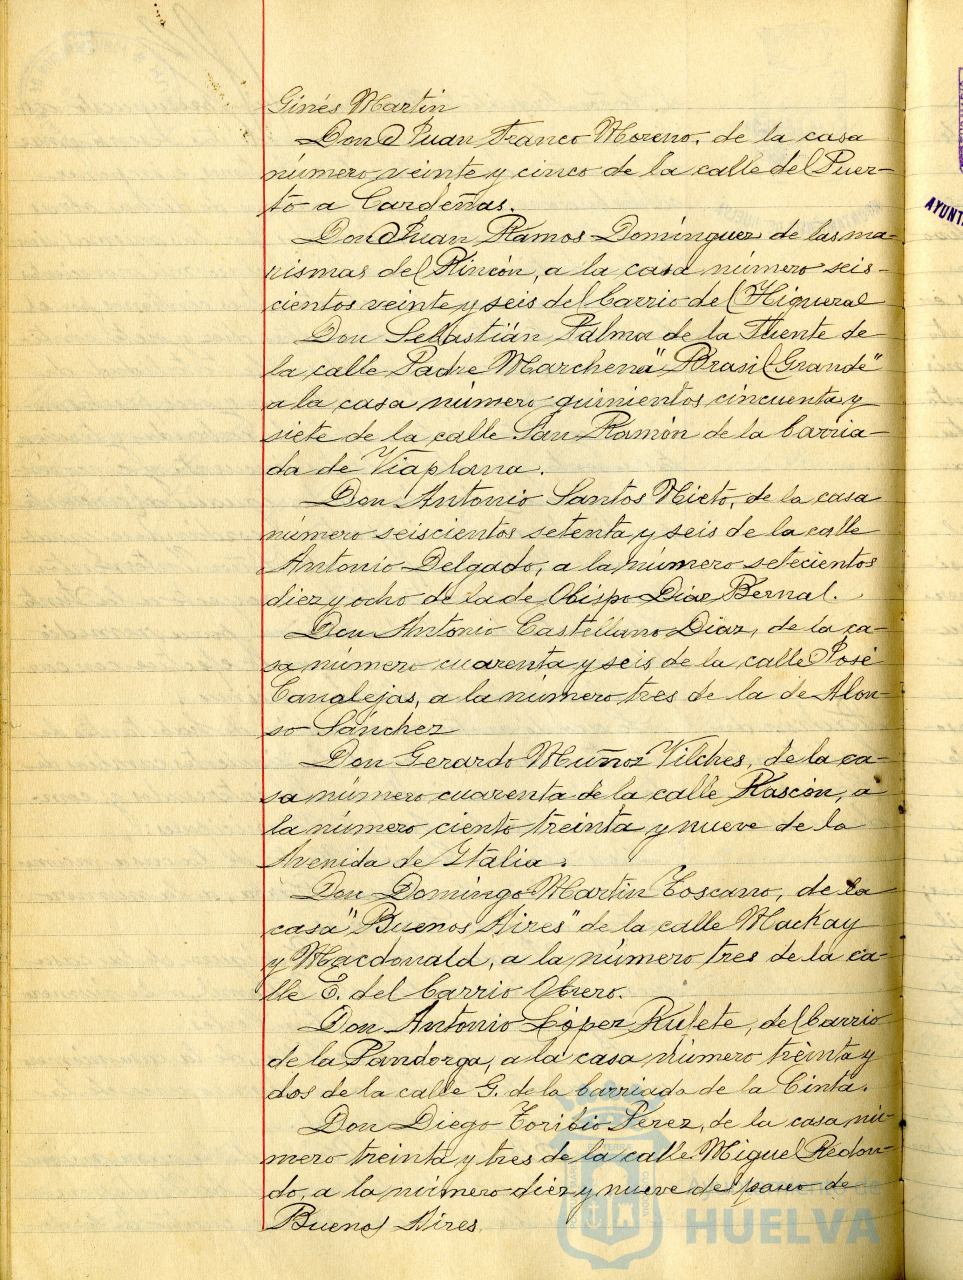 Ginés Martín
Don Juan Franco Moreno, de la casa
número veinte y cinco de la calle del Puer-
to a Cardeñas.
Don Juan Ramos Domínguez de las ma-
rismas del Rincón, a la casa número seis-
cientos veinte y seis del barrio del Higueral
Don Sebastián Palma de la Fuente de
la calle Padre Marchena "Brasil Grande"
a la casa número quinientos cincuenta y
siete de la calle San Ramón de la barria-
da de Viaplana.
Don Antonio Santos Nieto, de la casa
número seiscientos setenta y seis de la calle
Antonio Delgado, a la número setecientos
diez y ocho de la de Obispo Díaz Bernal.
Don Antonio Castellano Díaz, de la ca-
sa número cuarenta y seis de la calle José
Canalejas, a la número tres de la de Alon-
so Sánchez
Don Gerardo Muñoz Vilches, de la ca-
sa número cuarenta de la calle Rascón, a
la número ciento treinta y nueve de la
Avenida de Italia.
Don Domingo Martín Toscano, de la
casa "Buenos Aires" de la calle Mackay
y Macdonald, a la número tres de la ca-
lle E. del barrio Obrero.
Don Antonio López Rufete, del barrio
de la Pandorga, a la casa número treinta y
dos de la calle G. de la barriada de la Cinta.
Don Diego Toribio Pérez, de la casa nú-
mero treinta y tres de la calle Miguel Redon-
do, a la número diez y nueve del paseo de
Buenos Aires.
Ayuntamiento de
HUELVA
AYUNT